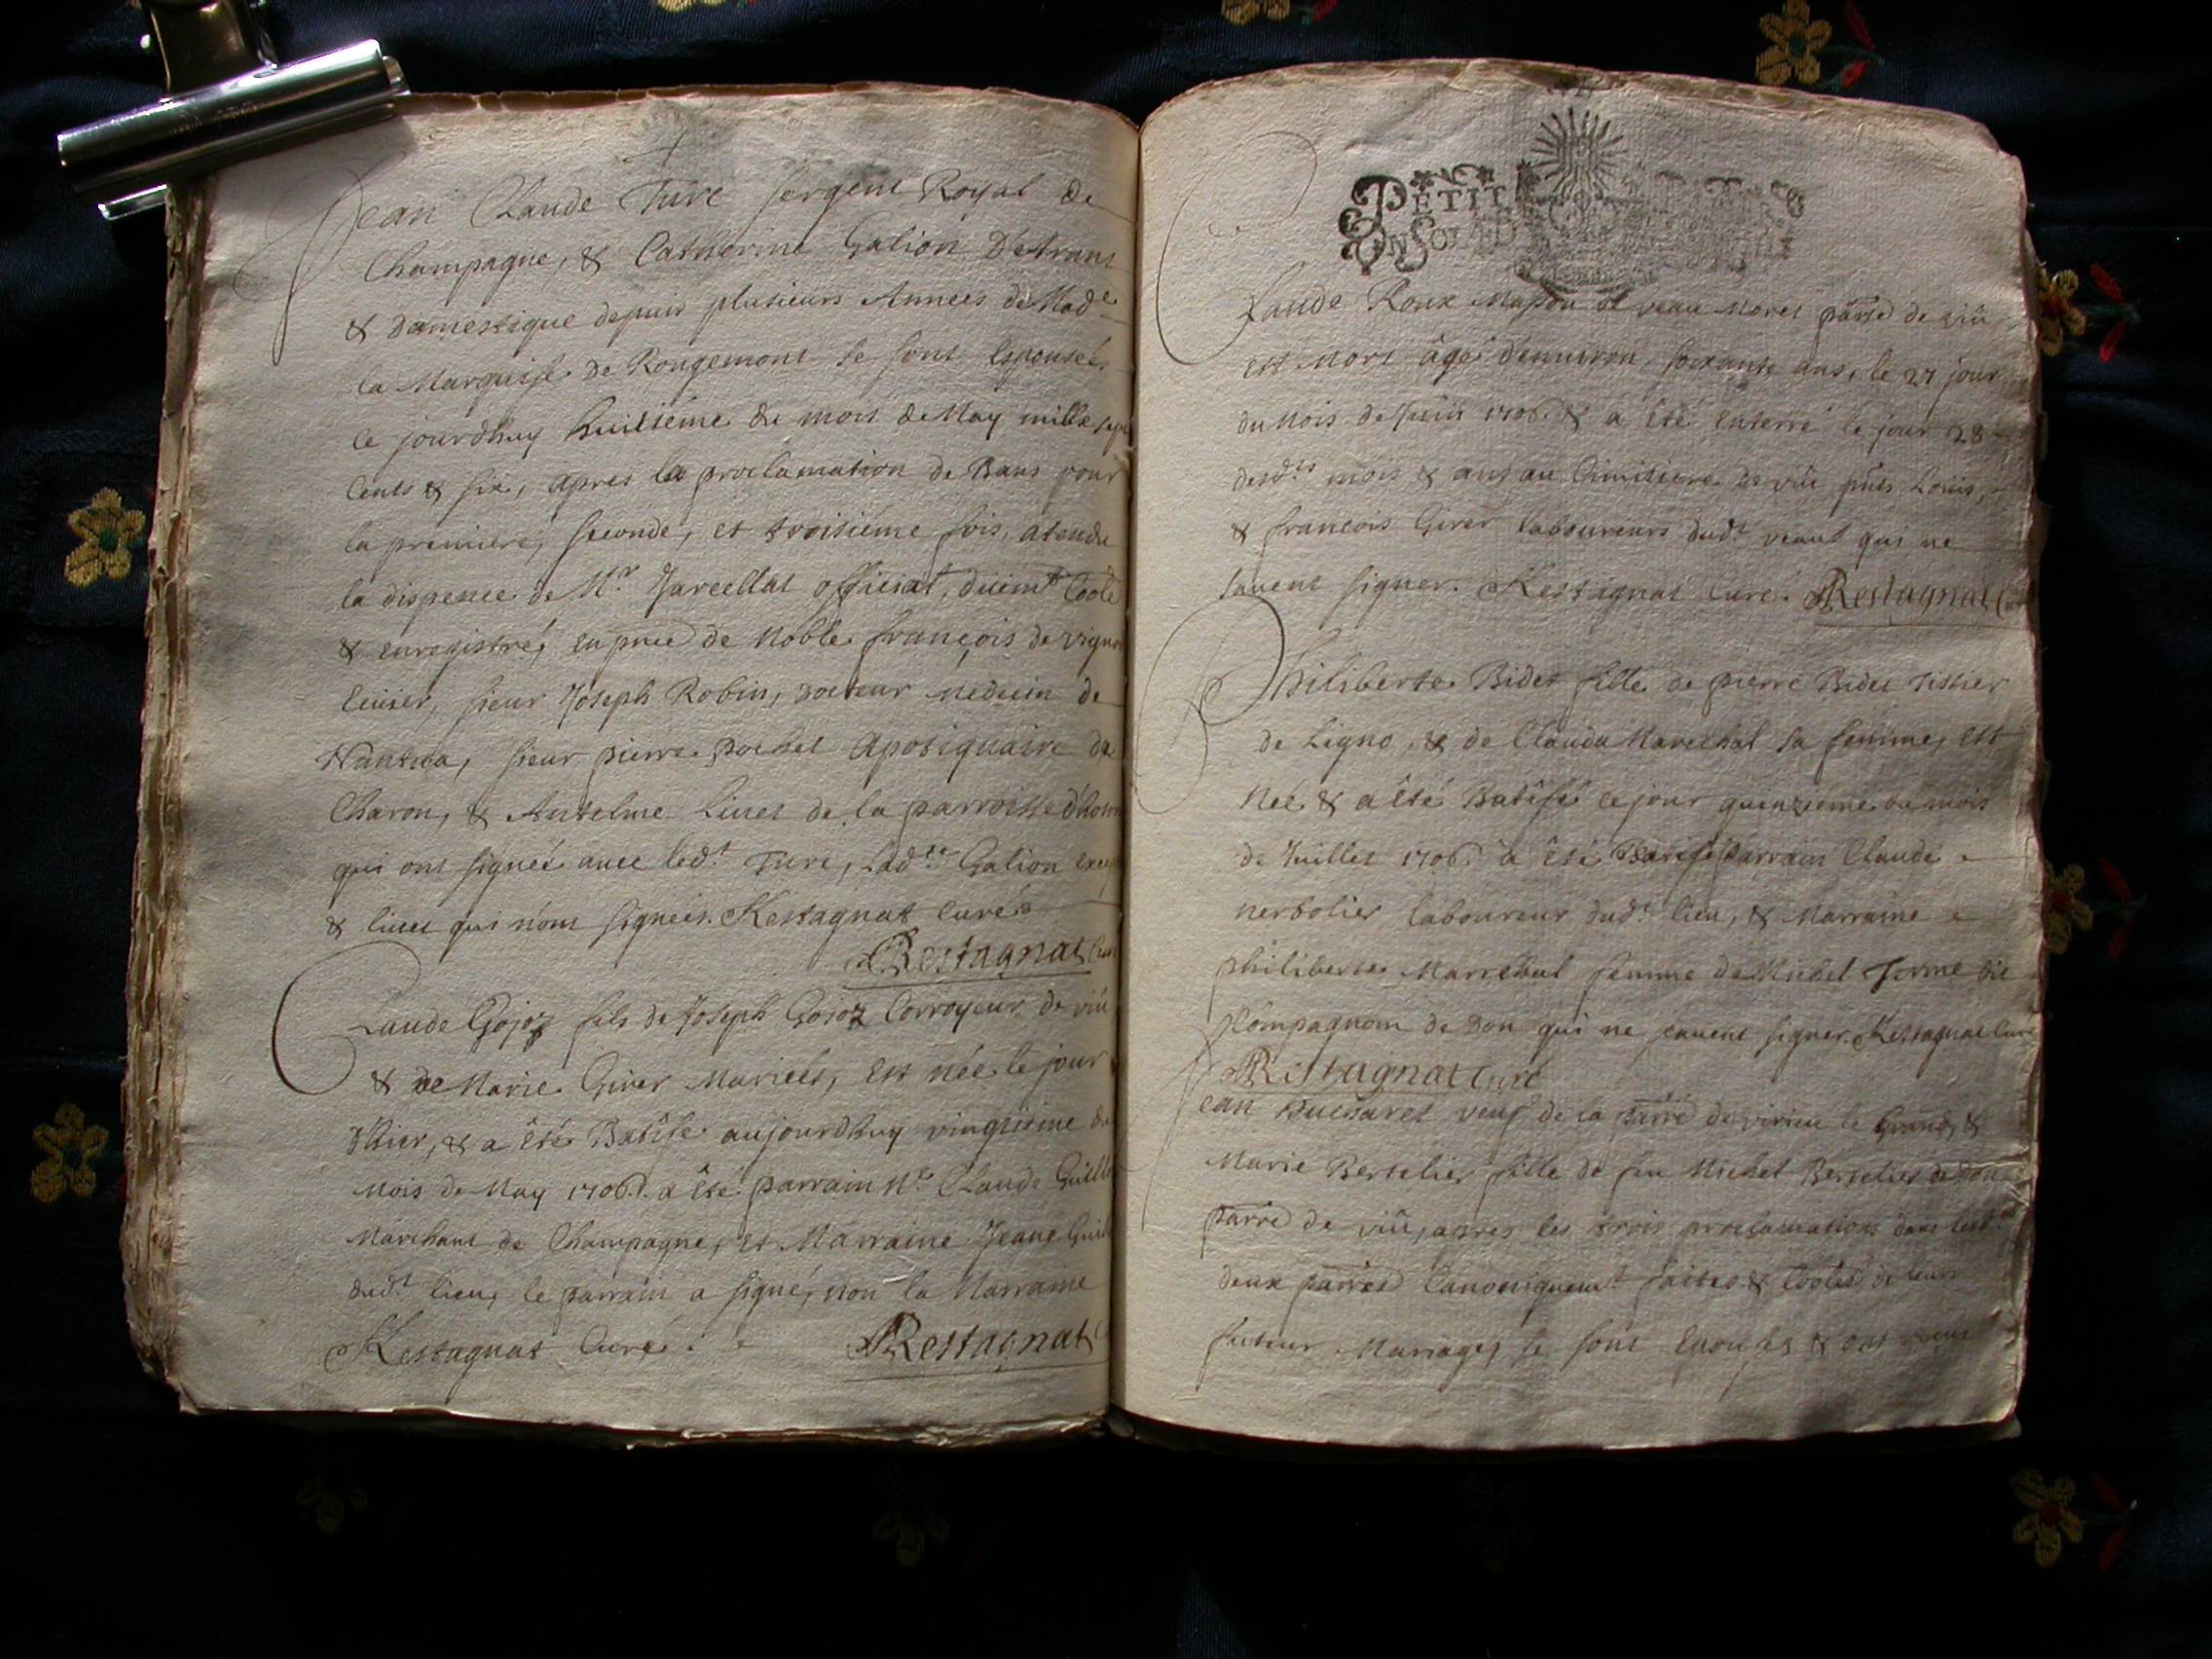 Jean Claude Turc sergent Royal de
Champagne, & Catherine Galion Detrans
& domestique depuis plusieurs Années de Made
la Marquise de Rougemont se sont Espousés
ce jourdhuy huitiéme du mois de May mille sept
Cents & six, apres la proclamation de Bans pour
la premiere, seconde, et troisiéme fois, atendu
la dispence de Mr. Jarcellat official, düemt Cotté
& enregistré, en pnce de Noble françois de vigno
sieur Joseph Robin, docteur medecin de
Nantua, sieur pierre pochet Apotiquaire de
Charon, & Antelme Livet de la parroisse
qui ont signés avec ledt Turc, Ladte Galion
& livet qui nont signées. Restagnat Curé
Restagnat Curé
Claude Gojoz fils de Joseph Gojoz Corroyeur de viû
& de Marie Girer Mariés, Est née le jour
d'hier, & a été Batisé aujourdhuy vingtiéme du
Mois de May 1706. a été parrain Mr. Claude
Marchant de Champagne, et Marraine Jeane
dudt lieu, le parrain a signé, non la Marraine
Restagnat Curé.
Restagnat
PETIT
Claude Roux Masson de veau Morel parre de viû
est Mort âgé denviron soixante ans, le 27 jour
du Mois de Juin 1706. & a été enterré le jour 28
desdts mois & ans au Cimitiere de viû pnts Loüis,
& françois Girer laboureurs dudt veaut qui ne
savent signer. Restagnat curé. Restagnat Curé
Philiberte Bidet fille de pierre Bidet Tissier
de Ligno, & de Claudu Marechal sa femme, est
Née & a été Batisé ce jour quinziéme du mois
de Juillet 1706. a été Parrain Claude
nerbolier laboureur dudt lieu, & Marraine
philiberte Marréchal femme de Michel Jerme dit
Compagnom de Don qui ne savent signer. Restagnat Curé
Restagnat Curé
Jean veuf de la parre de virieu le Grand, &
Marie Bertelier fille de feu Michel Bertelier de Don
parre de viû, apres les trois proclamations dans lesdts
deux parres Canoniquemt faites & Cottés de leur
futeur Mariage, se sont Epousés & ont